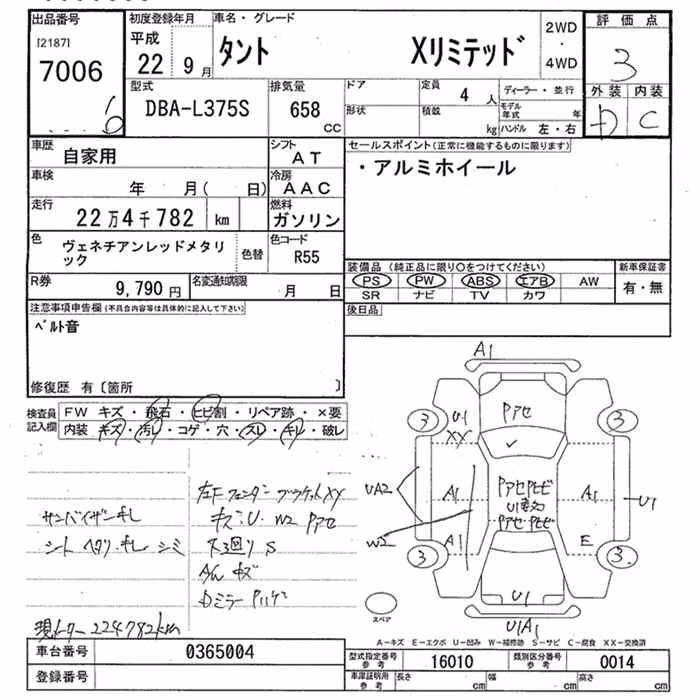 出品番号
[2187]
7006
初度登録年月
平成
22 9月
車名・グレード
タント Xリミテッド
2WD
・
4WD
評価点
3
外装 内装
D C
型式
DBA-L375S
排気量
658
CC
ドア
形状
定員
4 人
積載
kg
ディーラー・並行
モデル年式 年
ハンドル 左・右
車歴
自家用
シフト
AT
車検
年 月( 日)
冷房
AAC
走行
22万4千782 km
燃料
ガソリン
色
ヴェネチアンレッドメタリック
色替
色コード
R55
R券
9,790円
名変通知期限
月 日
セールスポイント(正常に機能するものに限ります)
・アルミホイール
装備品 (純正品に限り○をつけてください)
PS PW ABS エアB AW
SR ナビ TV カワ
新車保証書
有・無
後日品
注意事項申告欄(不具合内容等は具体的に記入して下さい)
ベルト音
修復歴 有〔箇所 〕
検査員記入欄
FW キズ・飛石・ヒビ割・リペア跡・×要
内装 キズ・汚レ・コゲ・穴・スレ・キレ・破レ
サンバイザーキレ
シートヘタリ・キレ シミ
左Fフェンダーブラケット XY
キズ・U・W2 Pアセ
下廻りS
A/W キズ
Dミラー Pハゲ
現メーター 224782km
A1
3
U1
XX
Pアセ
3
UA2
A1
PアセPヒビ
Pアセ・Pヒビ
A1
U1
W2
3
A1
E
3
U1
U1A1
スペア
A-キズ E-エクボ U-凹み W-補修跡 S-サビ C-腐食 XX-交換済
車台番号
0365004
登録番号
型式指定番号
参考
16010
類別区分番号
参考
0014
車庫証明用
参考
長さ cm
幅 cm
高さ cm